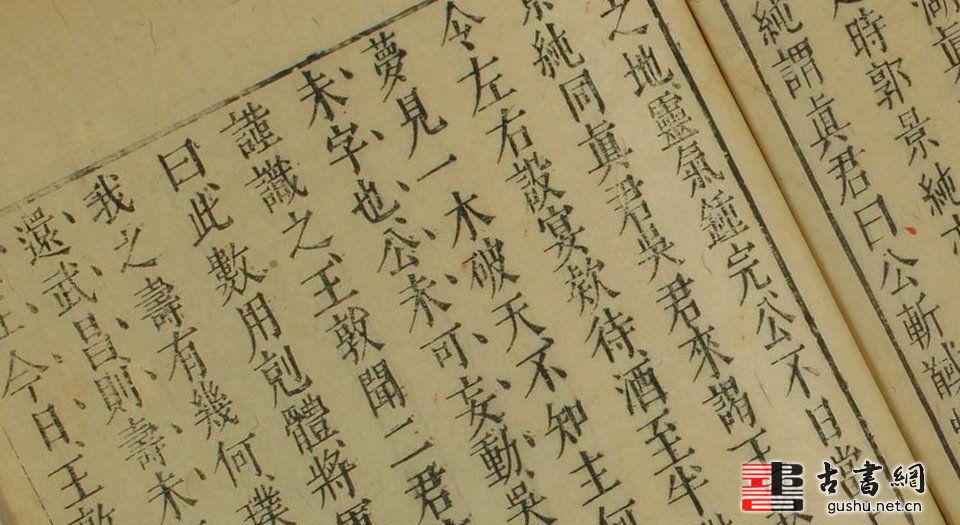 時郭景純
純謂眞君曰公斬
之地靈氣鍾完公不日當
純同眞君吳君來謁王
令左右設宴欵待酒至半
夢見一木破天不知主何
未字也、公未可、妄動、吳
謹識之、王敦聞二君
曰、此數用剋體、將軍
我之壽有幾何、璞
還、武、昌、則、壽、未、
今、日、王敦
古書網
gushu.net.cn